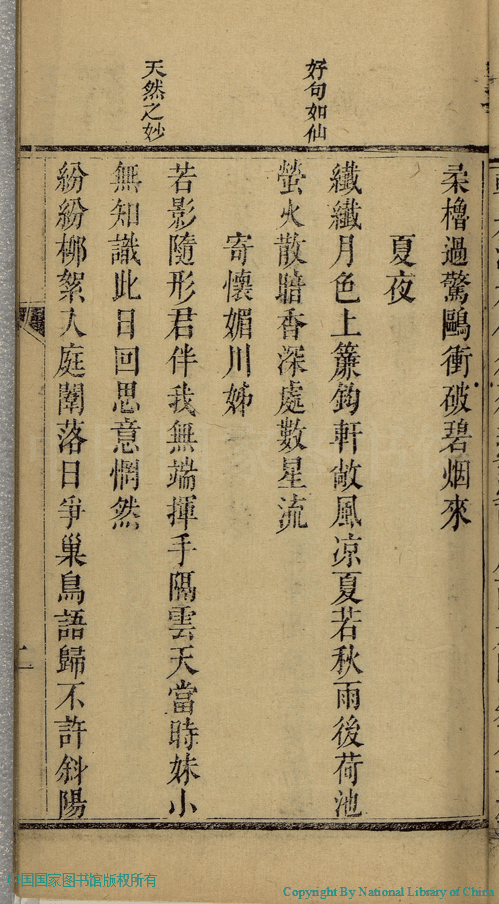 好句如仙
天然之妙
柔櫓過驚鷗衝破碧烟來
夏夜
纖纖月色上簾鈎軒敞風凉夏若秋雨後荷池
螢火散暗香深處數星流
寄懷媚川姊
若影隨形君伴我無端揮手隔雲天當時妹小
無知識此日回思意惘然
紛紛栁絮入庭闈落日爭巢鳥語歸不許斜陽
中国国家图书馆版权所有
Copyright By National Library of China